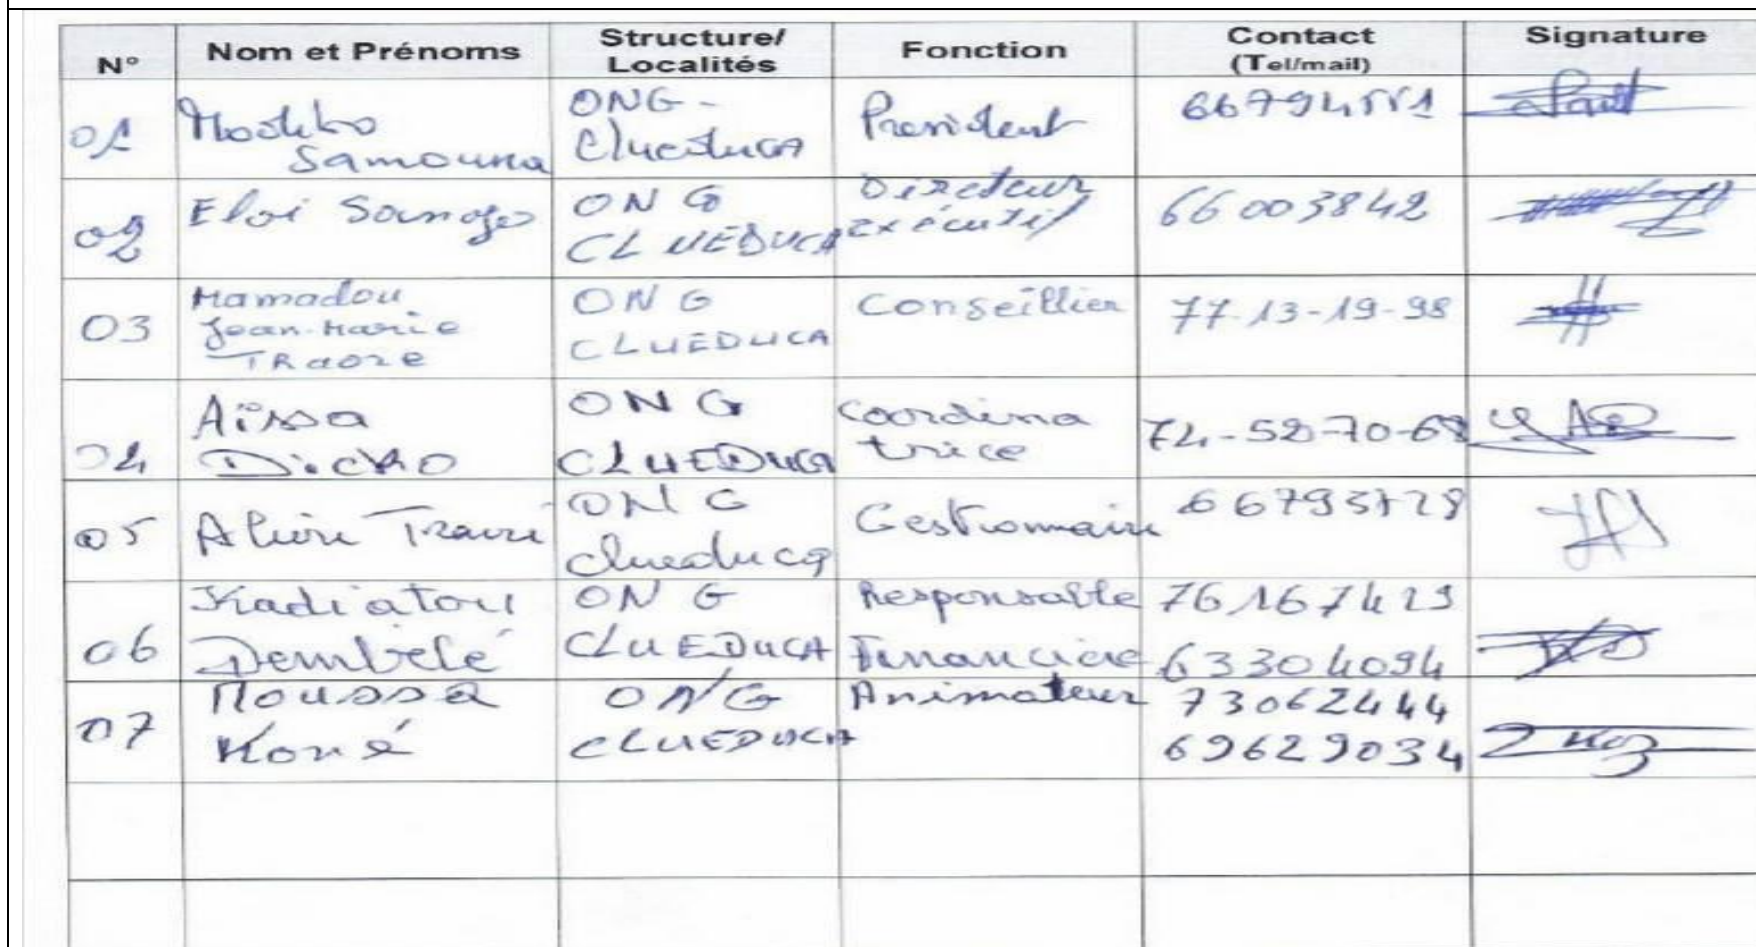 N° Nom et Prénoms Structure/ Localités Fonction Contact (Tel/mail) Signature
01 Samouna ONG- Clueduca President
02 Eloi Sanogo ONG CLUEDUCA Directeur exécutif 66003842
03 Mamadou Jean-Marie TRaore ONG CLUEDUCA Conseillier 77-13-19-98
04 Aïssa Dicko ONG CLUEDUCA Coordina trice
05 ONG clueduca Gestionnaire
06 Kadiatou Dembélé ONG CLUEDUCA Responsable Financiere 76167429 63304094
07 Moussa Koné ONG CLUEDUCA Animateur 73062444 69629034